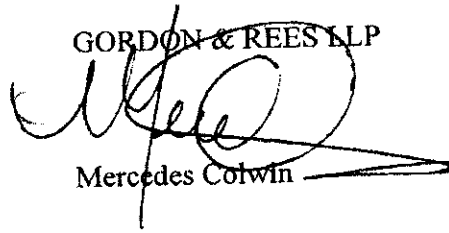 GORDON & REES LLP
Mercedes Colwin